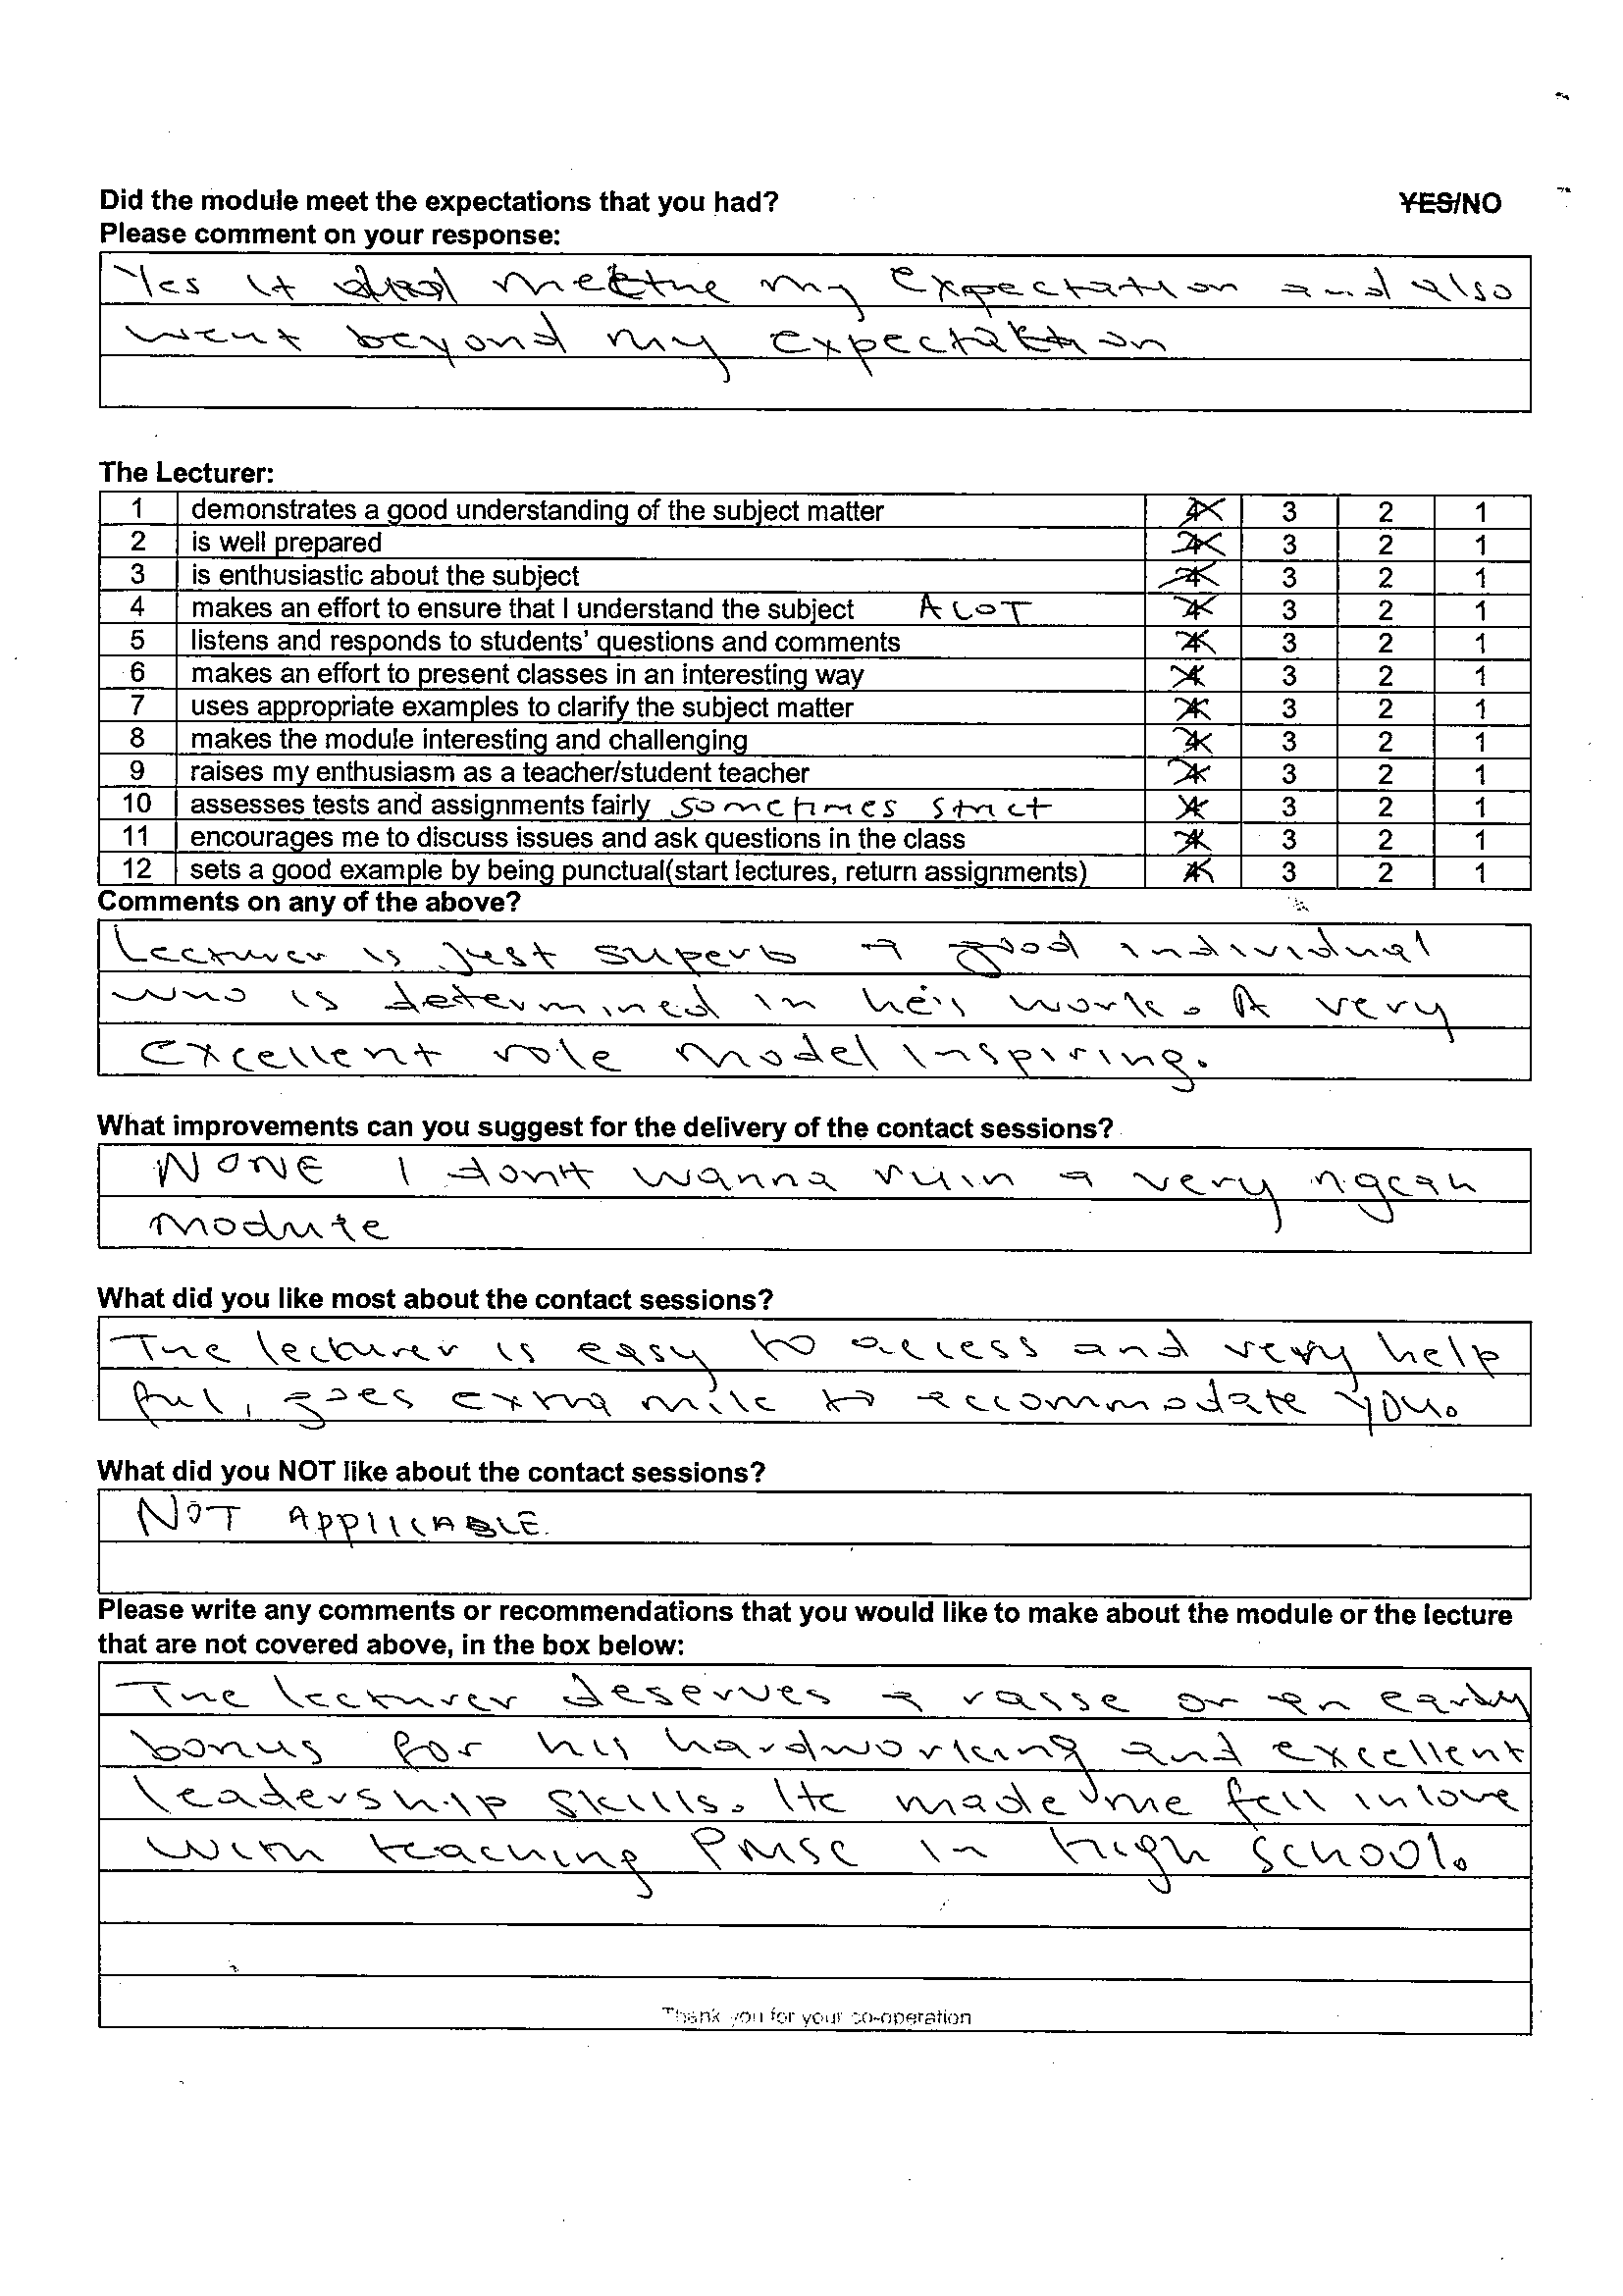 Did the module meet the expectations that you had? YES/NO
Please comment on your response:
Yes it did meet the my expectation and also
went beyond my expectation
The Lecturer:
1 demonstrates a good understanding of the subject matter 4 3 2 1
2 is well prepared 4 3 2 1
3 is enthusiastic about the subject 4 3 2 1
4 makes an effort to ensure that I understand the subject A LOT 4 3 2 1
5 listens and responds to students' questions and comments 4 3 2 1
6 makes an effort to present classes in an interesting way 4 3 2 1
7 uses appropriate examples to clarify the subject matter 4 3 2 1
8 makes the module interesting and challenging 4 3 2 1
9 raises my enthusiasm as a teacher/student teacher 4 3 2 1
10 assesses tests and assignments fairly sometimes strict 4 3 2 1
11 encourages me to discuss issues and ask questions in the class 4 3 2 1
12 sets a good example by being punctual(start lectures, return assignments) 4 3 2 1
Comments on any of the above?
Lecturer is just superb a good individual
who is determined in he's work. A very
excellent role model inspiring.
What improvements can you suggest for the delivery of the contact sessions?
NONE I dont wanna ruin a very
module
What did you like most about the contact sessions?
The lecturer is easy to access and very help
ful, goes extra mile to accommodate you.
What did you NOT like about the contact sessions?
NOT APPLICABLE.
Please write any comments or recommendations that you would like to make about the module or the lecture
that are not covered above, in the box below:
The lecturer deserves a rasse or an early
bonus for his hardworking and excellent
leadership skills. He made me fell in love
with teaching PMSC in high school.
Thank you for your co-operation